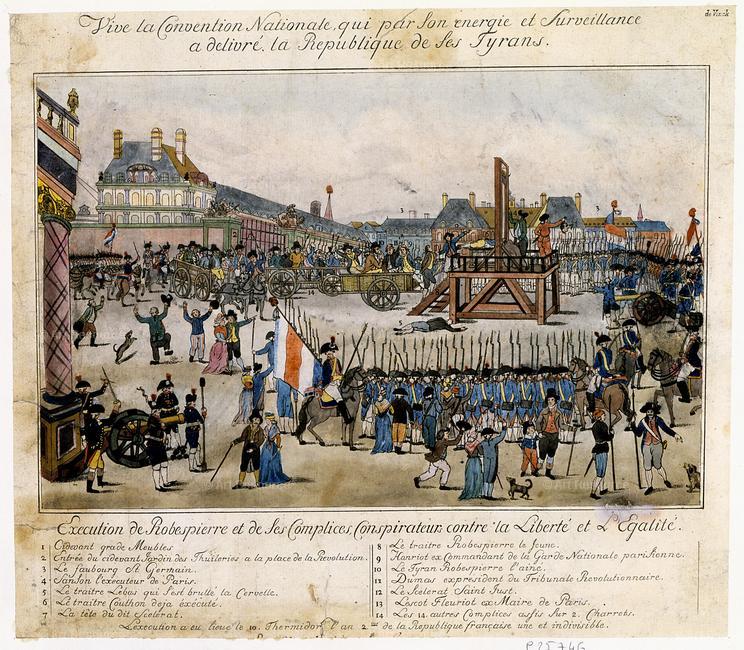 Vive la Convention Nationale, qui par Son energie et Surveillance
a delivré, la Republique de Ses Tyrans.
de Vinck
3
3
14
Execution de Robespierre et de Ses Complices, Conspirateurs contre la Liberté et L'Egalité.
1 Cidevant garde Meubles
2 Entrée du cidevant Jardin des Thuileries a la place de la Revolution.
3 Le faubourg St Germain.
4 Sanson l'executeur de Paris.
5 Le traitre Lebas qui s'est brullé la Cervelle.
6 Le traitre Couthon deja execute.
7 La tête du dit Scelerat.
8 Le traitre Robespierre le Jeune.
9 Hanriot ex Commandant de la Garde Nationale parisienne.
10 Le Tyran Robespierre l'ainé.
11 Dumas expresident du Tribunale Revolutionnaire.
12 Le Scelerat Saint Just.
13 Lescot Fleuriot ex Maire de Paris.
14 Les 14 autres Complices assis Sur 2. Charrots.
L'execution a eu lieu le 10. Thermidor l'an 2me de la Republique française une et indivisible.
P25746